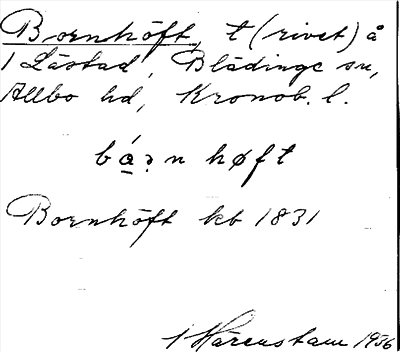 Bornhöft, t (rivet) å
1 Låstad, Blädinge sn,
Allbo hd, Kronob. l.
bá̱ɔn høft
Bornhöft kb 1831
Härenstam 1936